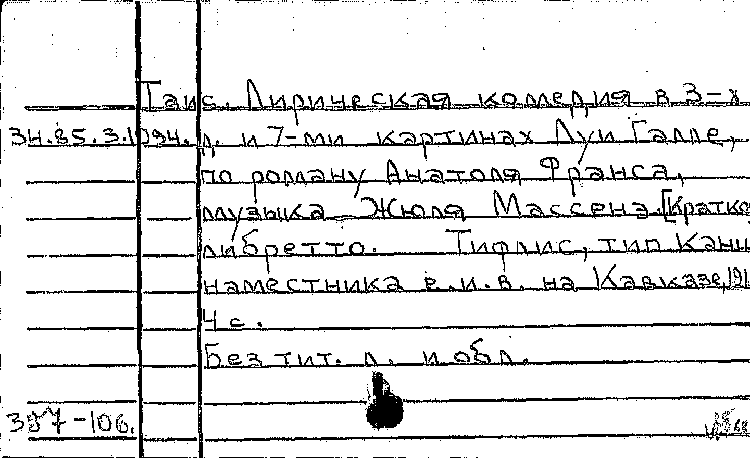 Таис. Лирическая комедия в 3-х
34.85.3.1094. д. и 7-ми картинах Луи Галле,
по роману Анатоля Франса,
музыка Жюля Массена. [Кратко
либретто. Тифлис, тип. Канц
наместника е.и.в. на Кавказе, 191
4 с.
Без тит. л. и обл.
397-106.